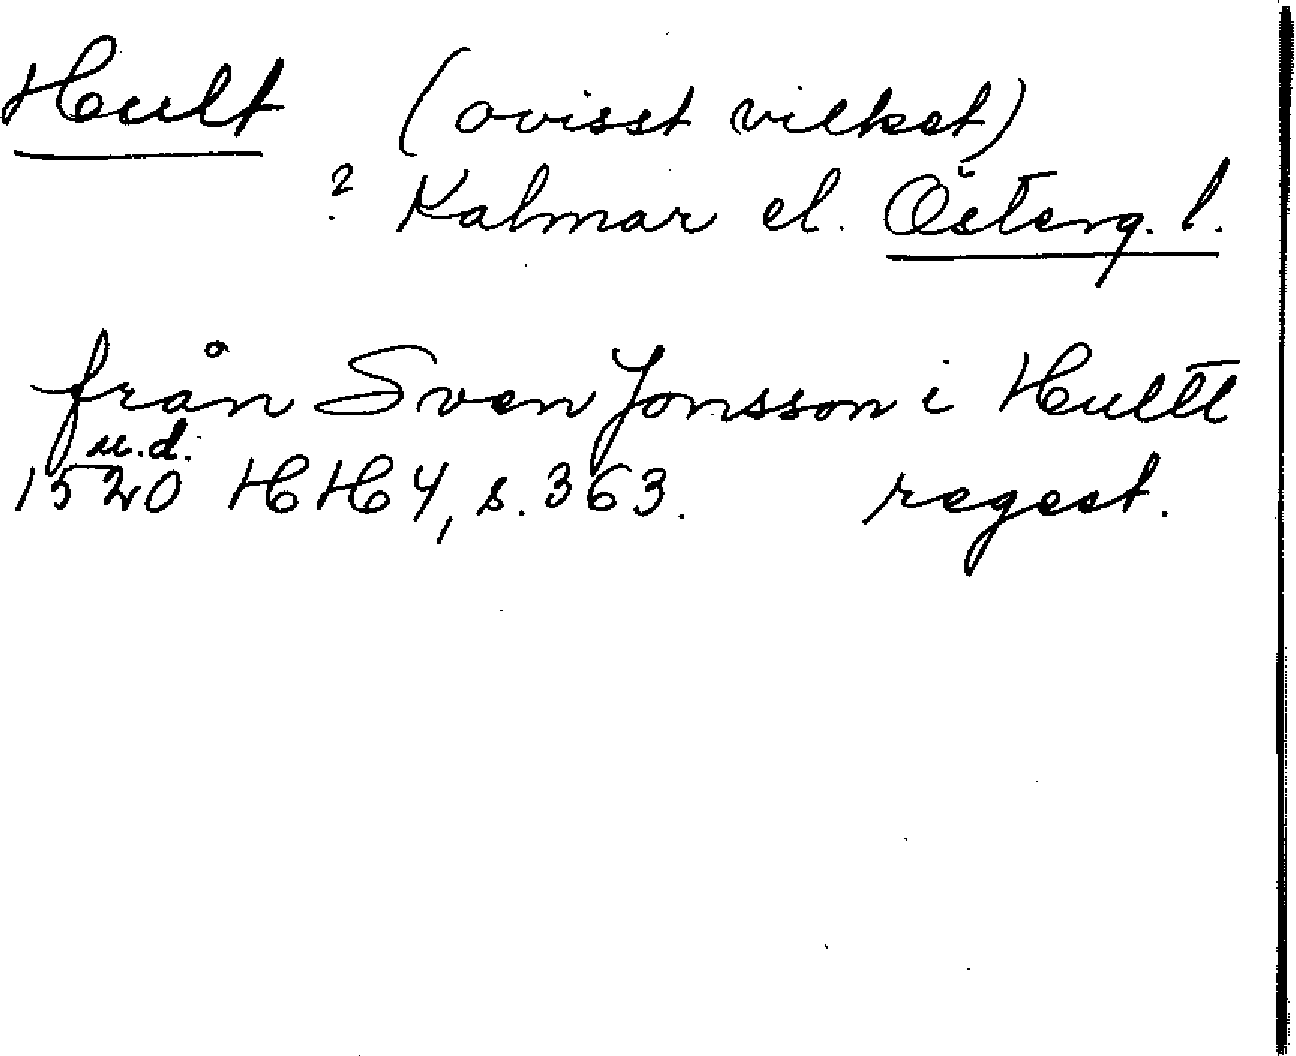 Hult (ovisst vilket)
? Kalmar el. Österg. l.
från Sven Jonsson i Hultt
u.d.
1520 HH 4, s. 363. regest.